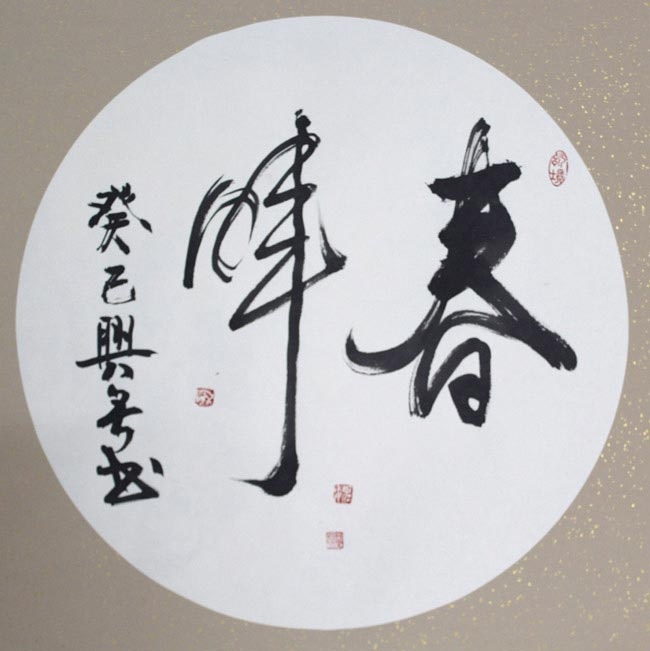 春晖
癸巳興书